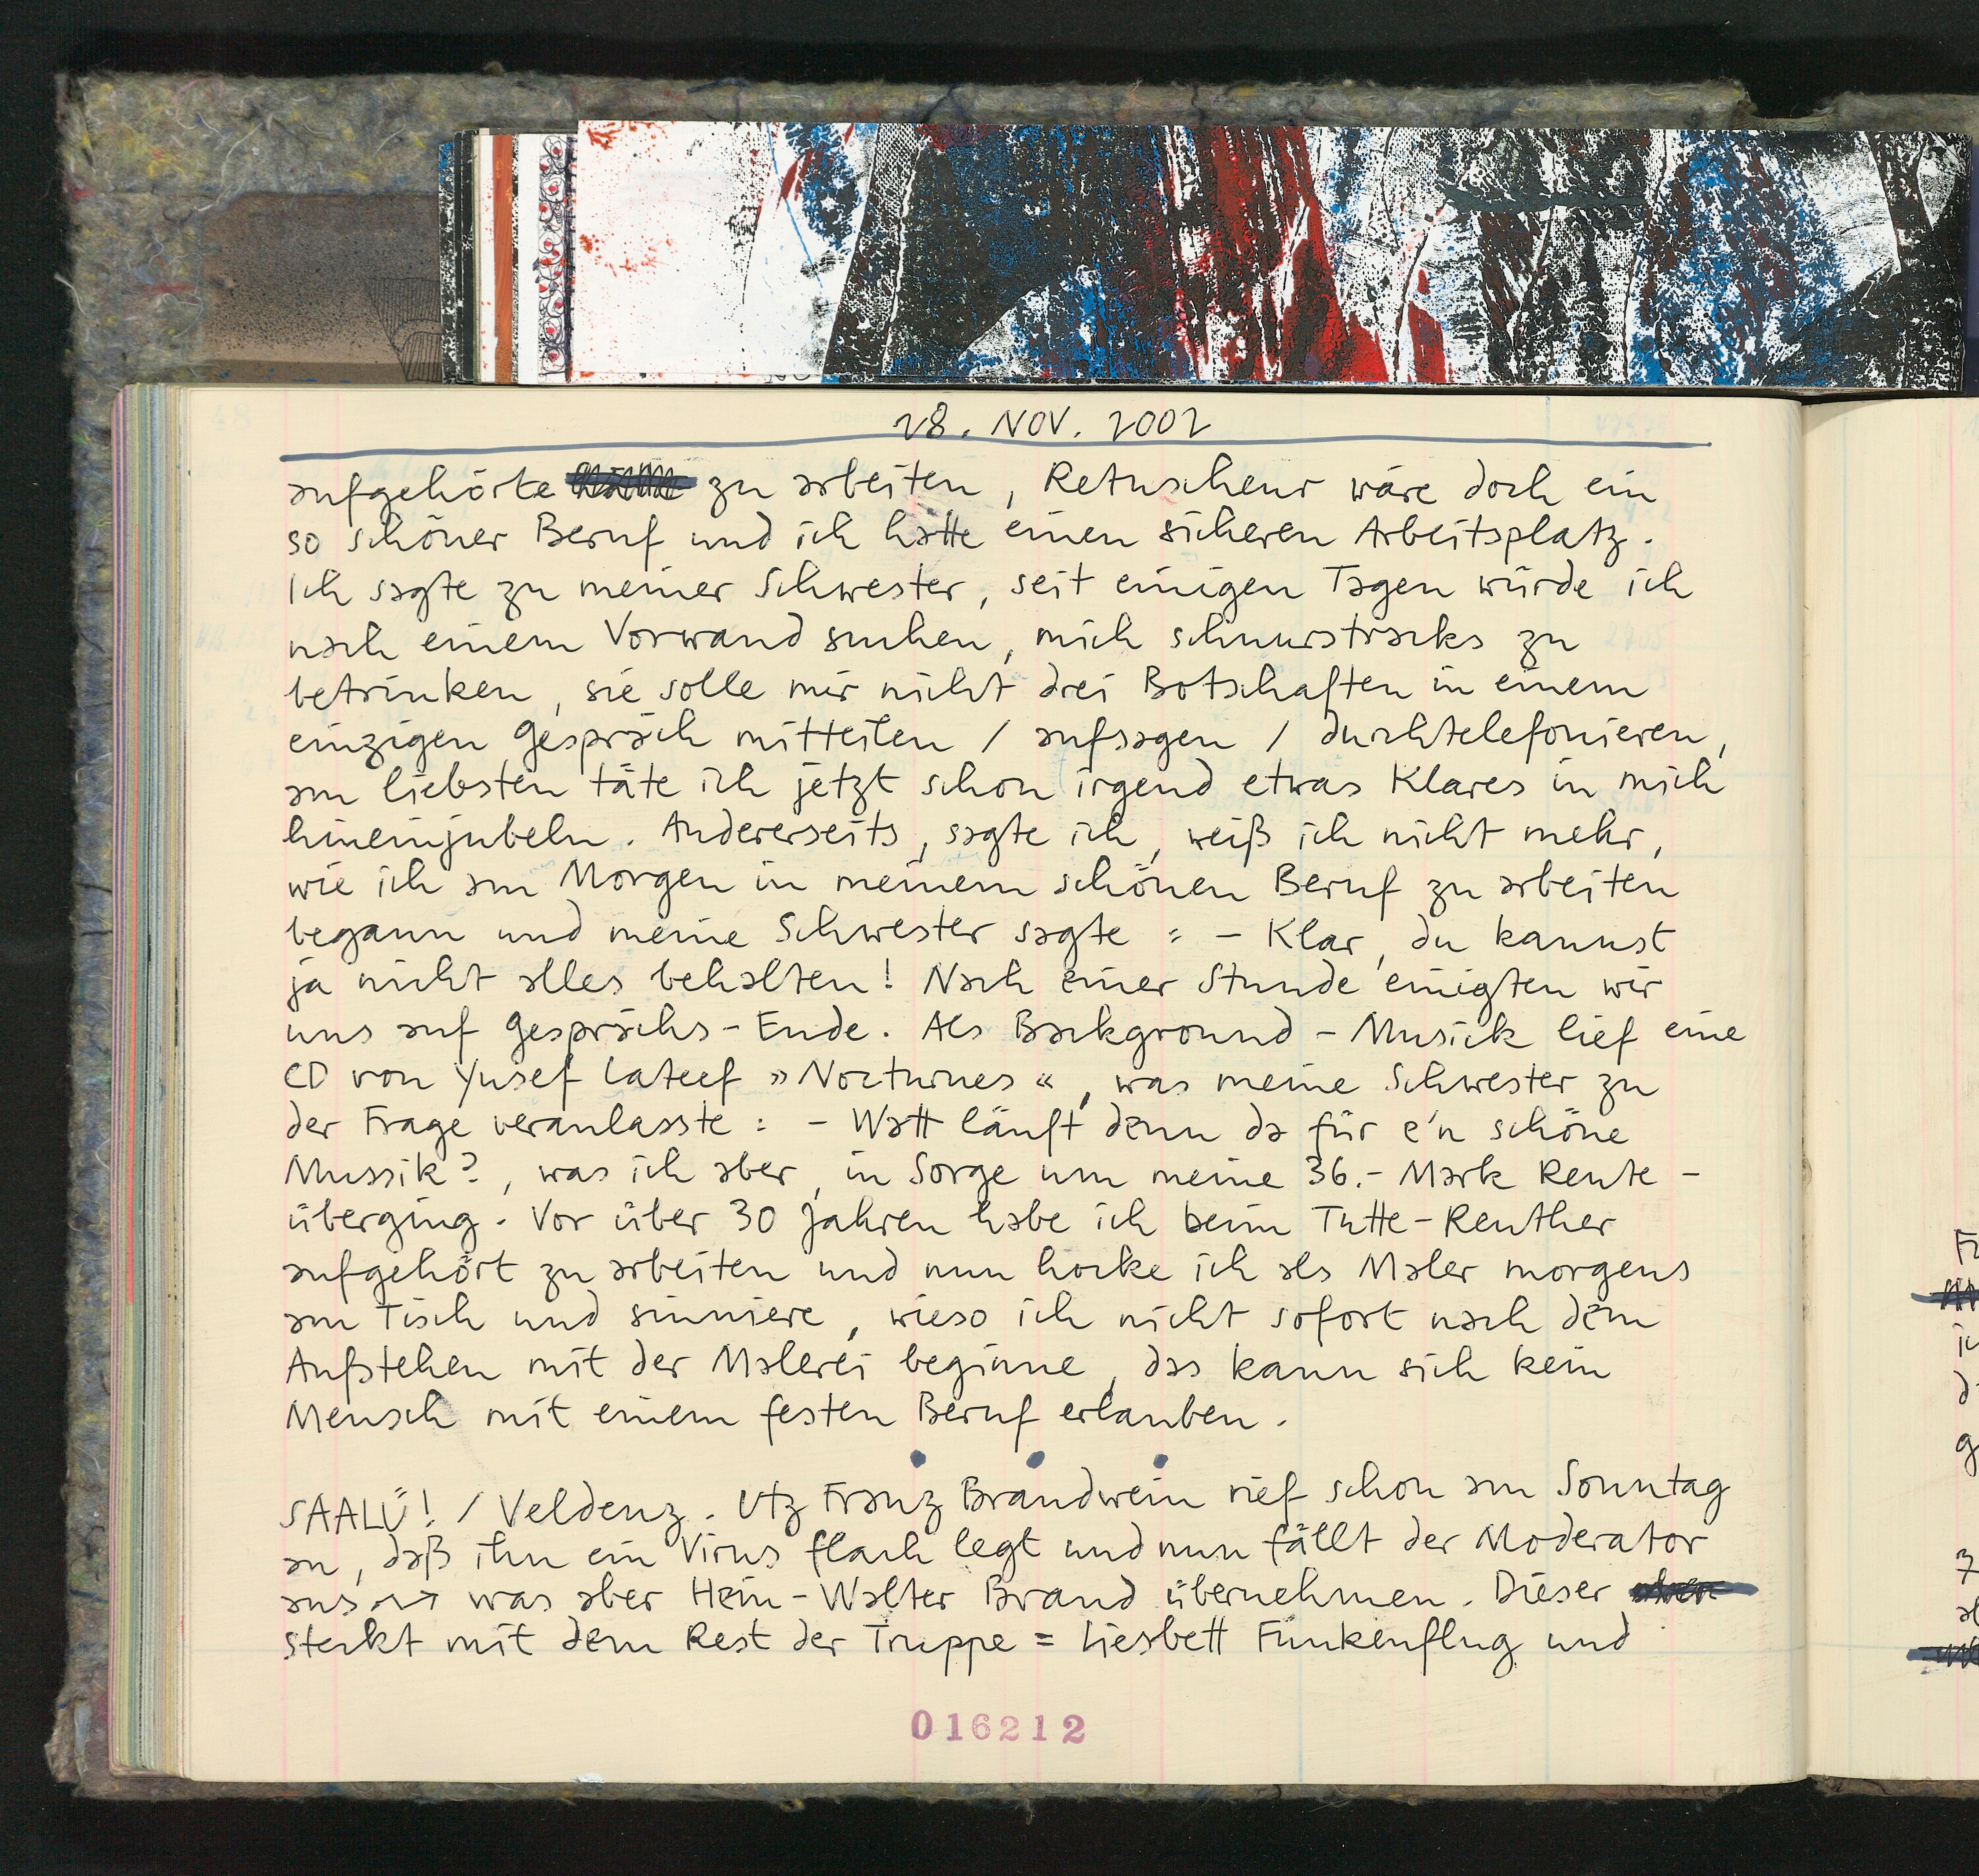 28. NOV. 2002
aufgehörte zu arbeiten, Retuscheur wäre doch ein
so schöner Beruf und ich hatte einen sicheren Arbeitsplatz.
Ich sagte zu meiner Schwester, seit einigen Tagen würde ich
nach einem Vorwand suchen, mich schnurstracks zu
betrinken, sie solle mir nicht drei Botschaften in einem
einzigen Gespräch mitteilen / aufsagen / durchtelefonieren,
am liebsten täte ich jetzt schon irgend etwas Klares in mich
hineinjubeln. Andererseits, sagte ich, weiß ich nicht mehr,
wie ich am Morgen in meinem schönen Beruf zu arbeiten
begann und meine Schwester sagte : - Klar, du kannst
ja nicht alles behalten! Nach einer Stunde einigten wir
uns auf Gesprächs-Ende. Als Background-Musick lief eine
CD von Yusef Lateef »Nocturnes«, was meine Schwester zu
der Frage veranlasste : - Watt läuft denn da für e'n schöne
Mussik?, was ich aber, in Sorge um meine 36.- Mark Rente -
überging. Vor über 30 Jahren habe ich beim Tutte-Reuther
aufgehört zu arbeiten und nun hocke ich als Maler morgens
am Tisch und sinniere, wieso ich nicht sofort nach dem
Aufstehen mit der Malerei beginne, das kann sich kein
Mensch mit einem festen Beruf erlauben.
SAALÜ! / Veldenz. Utz Franz Brandwein rief schon am Sonntag
an, daß ihn ein Virus flach legt und nun fällt der Moderator
aus → was aber Hein-Walter Brand übernehmen. Dieser
steckt mit dem Rest der Truppe = Liesbett Funkenflug und
016212